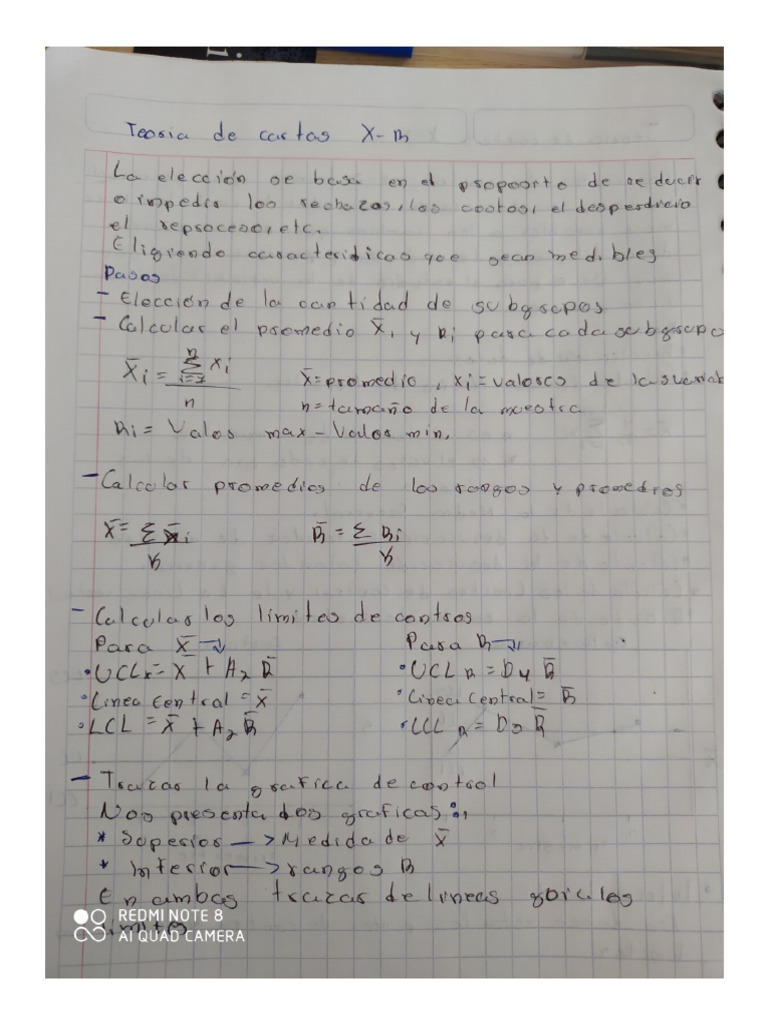 Teoria de cartas X-R
La elección se basa en el proposito de reducir
o impedir los rechazos, los costos, el desperdicio
el reproceso, etc.
Eligiendo caracteristicas que sean medibles
Pasos
- Elección de la cantidad de subgrupos
- Calcular el promedio X̄, y Ri para cada subgrupo
X̄i = Σ(i=1, n) xi / n    X̄=promedio, xi=valores de la
n=tamaño de la muestra
Ri = Valor max - Valor min.
- Calcular promedios de los rangos y promedios
X̄ = Σ X̄i / n    R̄ = Σ Ri / n
- Calcular los limites de contros
Para X̄ →    Para R →
• UCLx = X̄ + A2 R̄    • UCL R = D4 R̄
• Linea central = X̄    • Linea central = R̄
• LCL = X̄ + A2 R̄    • LCL R = D3 R̄
- Trazar la grafica de control
Nos presenta dos graficas:
* Superior → Medida de X̄
* Inferior → rangos R
En ambas trazar de lineas
limites
REDMI NOTE 8
AI QUAD CAMERA